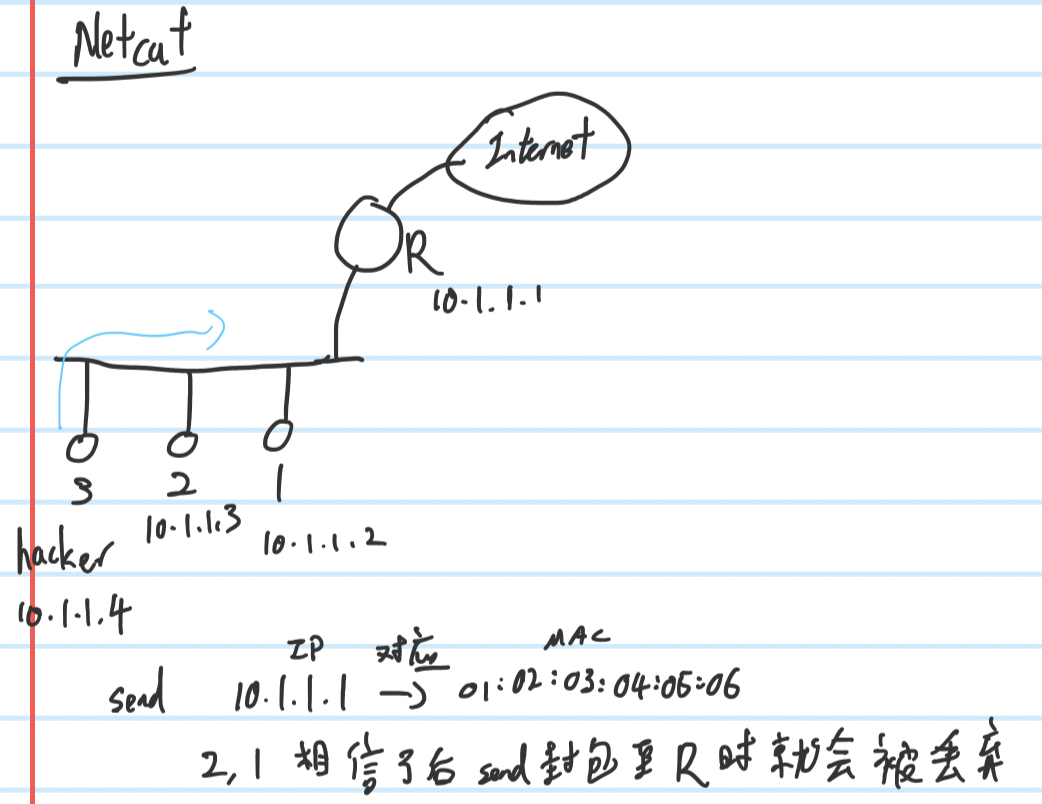 Netcut
Internet
R
10.1.1.1
3 2 1
10.1.1.3
10.1.1.2
hacker
10.1.1.4
IP 对应 MAC
send 10.1.1.1 → 01:02:03:04:05:06
2,1 相信了后 send 封包至 R 时就会被丢弃